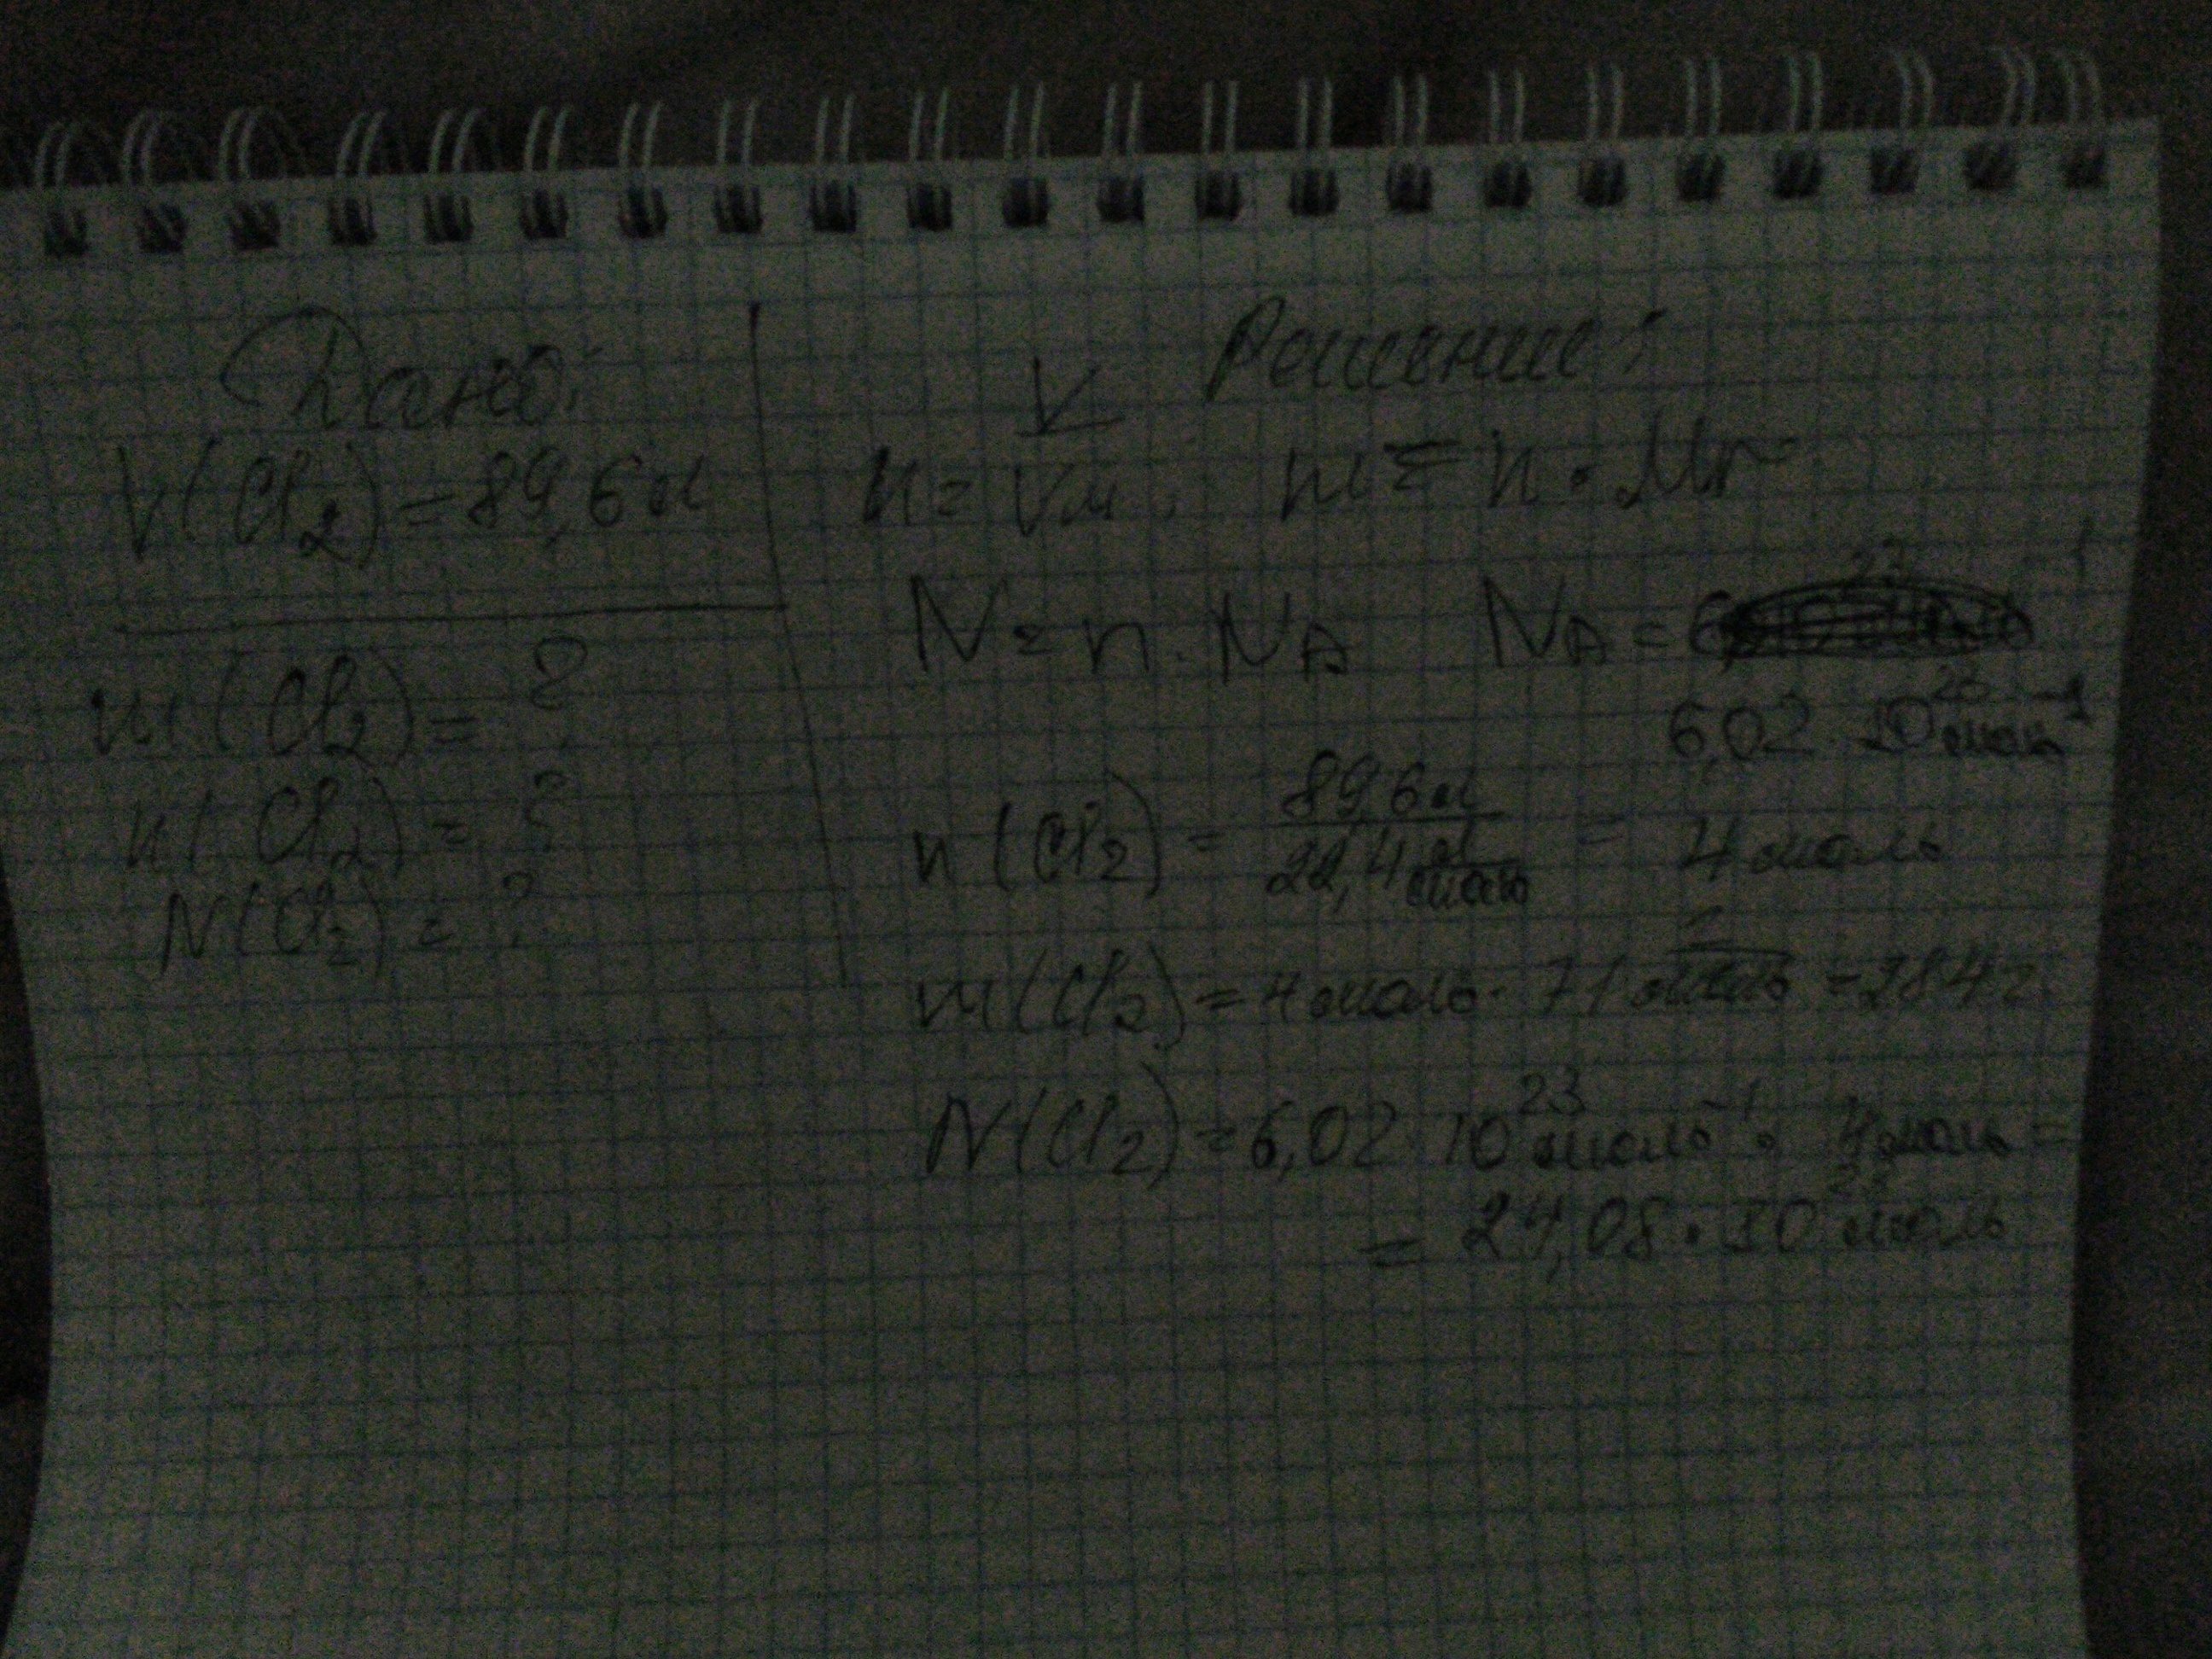 Дано:
V(Cl2) = 89,6 л
m(Cl2) = ?
n(Cl2) = ?
N(Cl2) = ?
Решение:
n = V/Vм; m = n · Mr
N = n · NA NA = 6,
6,02 · 10 моль^-1
n(Cl2) = 89,6 л / 22,4 л/моль = 4 моль
m(Cl2) = 4 моль · 71 г/моль = 284 г
N(Cl2) = 6,02 · 10^23 моль^-1 · 4 моль =
= 24,08 · 10^23 моль